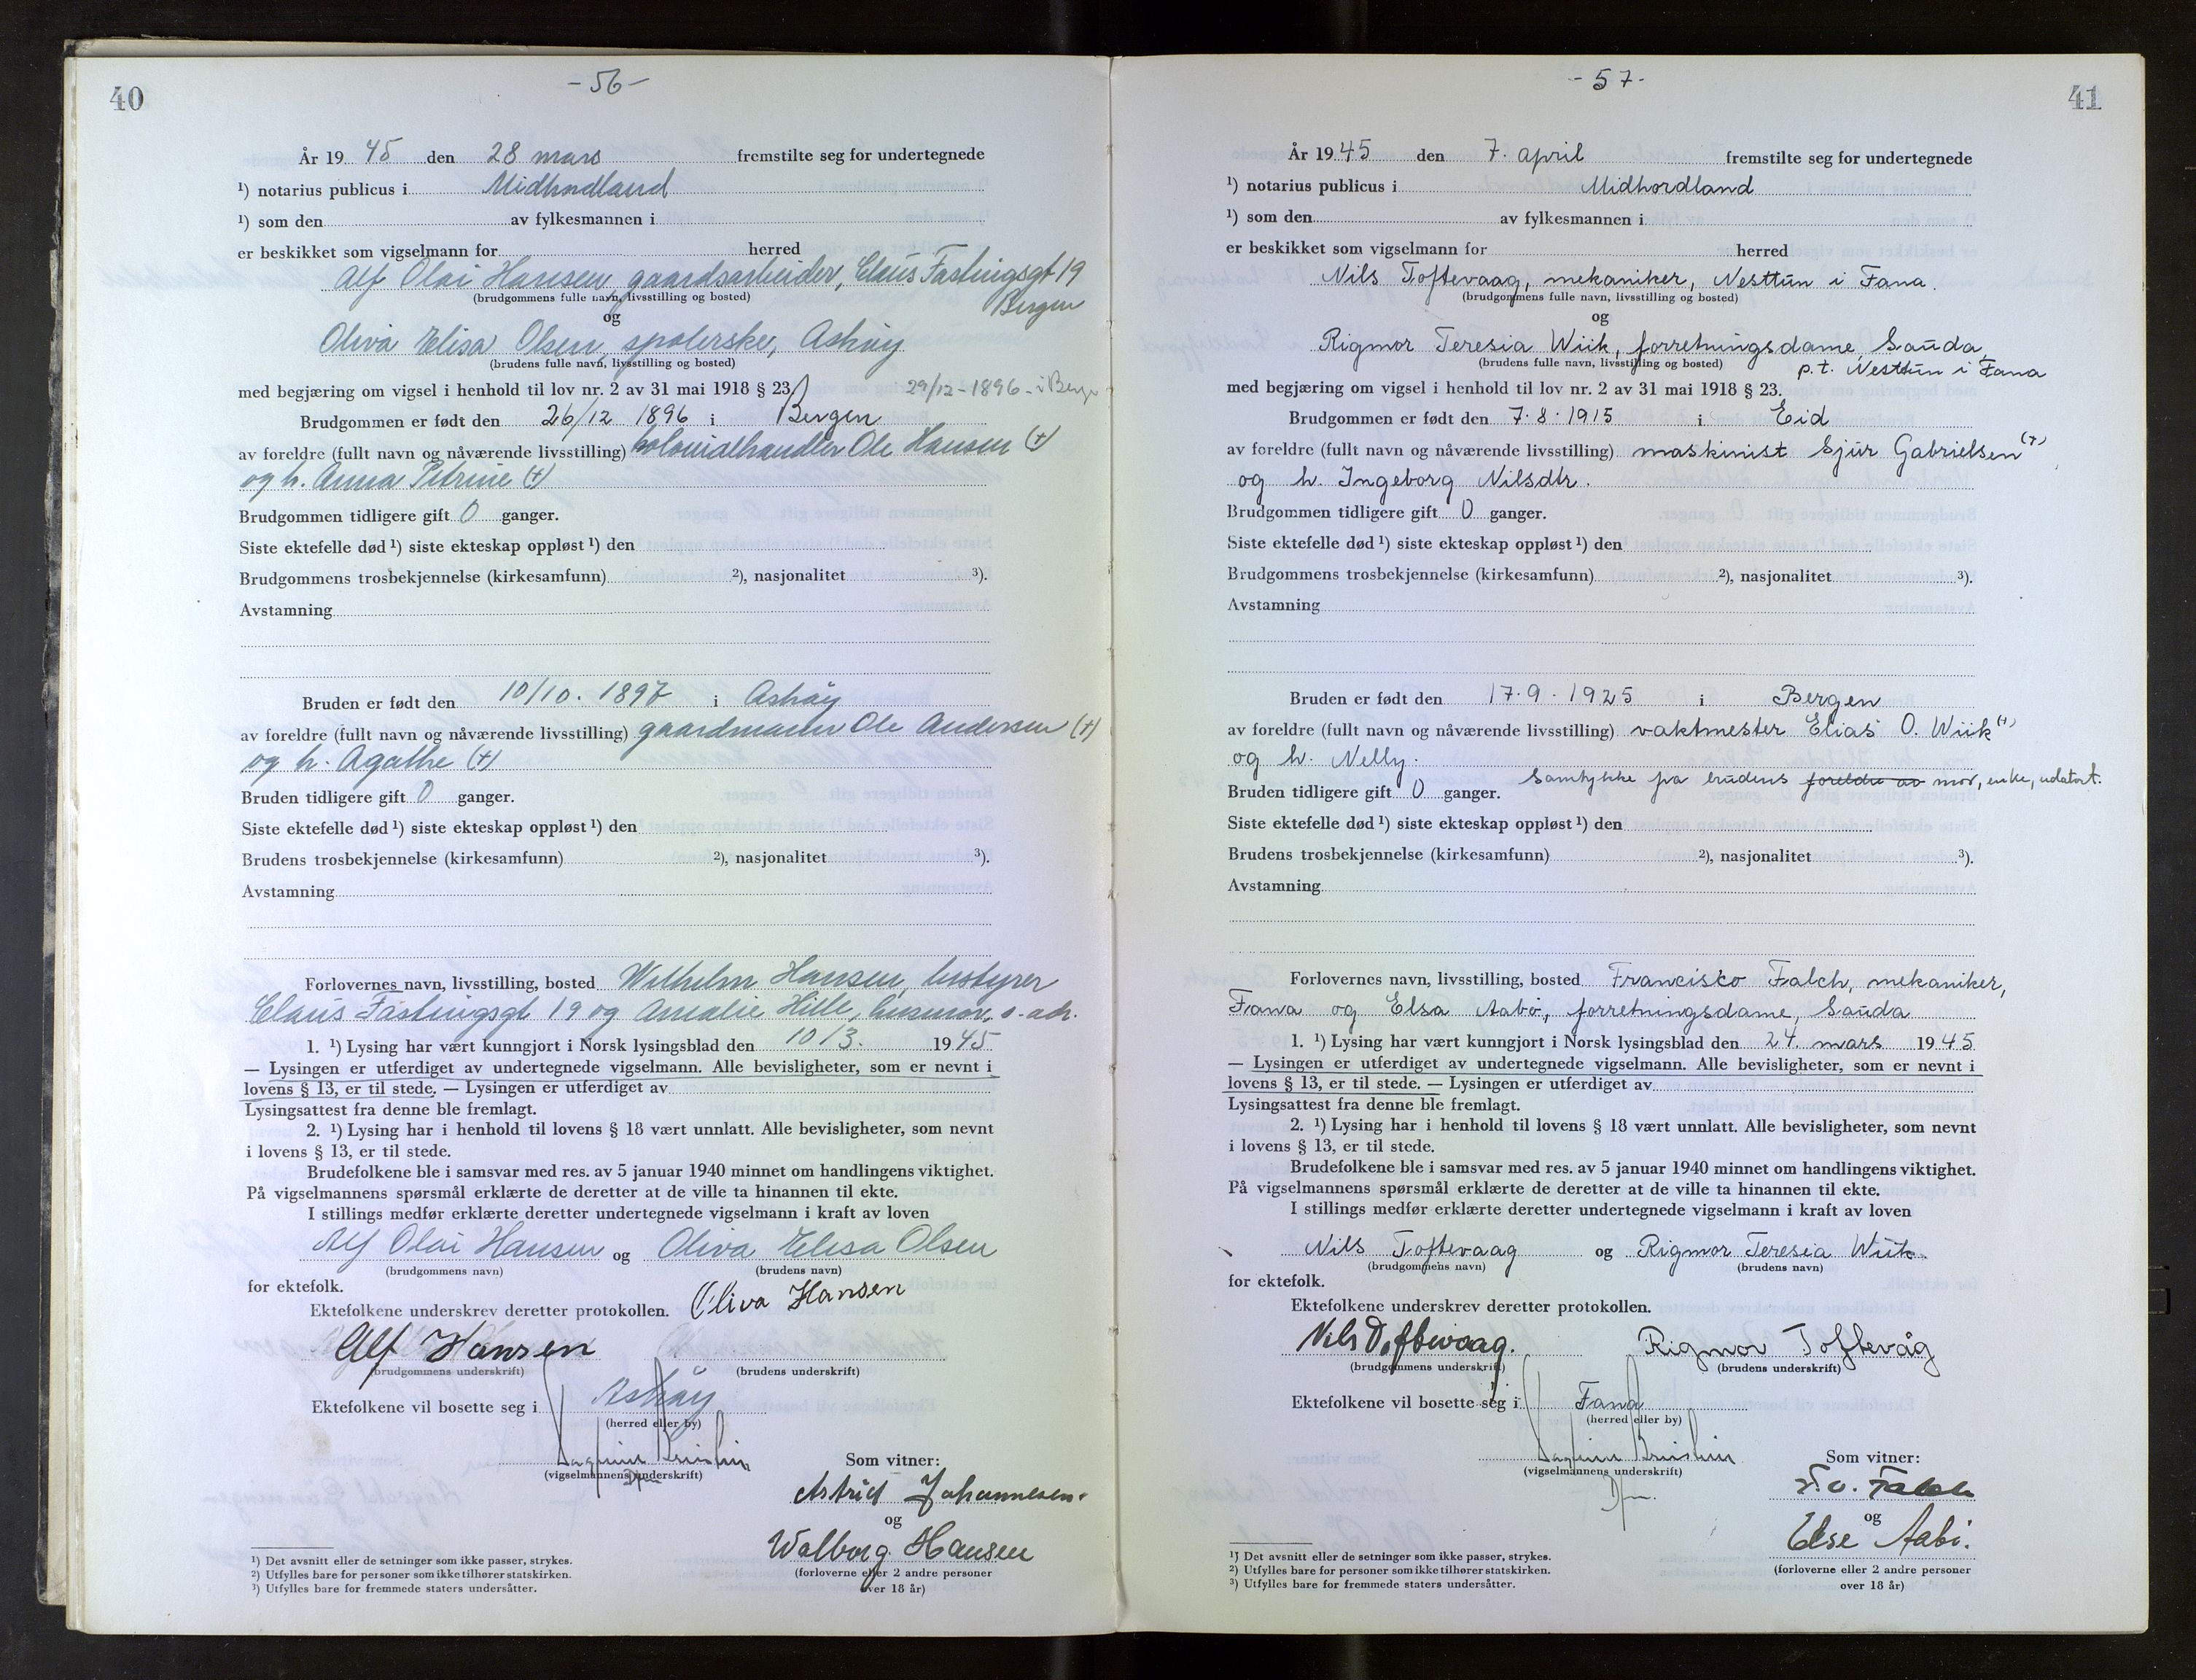 40
- 56 -
År 19 45 den 28 mars fremstilte seg for undertegnede
¹) notarius publicus i Midhordland
¹) som den av fylkesmannen i
er beskikket som vigselmann for herred
Alf Olai Hansen gaardsarbeider, Claus Fastingsgt 19
Bergen
(brudgommens fulle navn, livsstilling og bosted)
og
Oliva Elisa Olsen, spolerske, Askøy
(brudens fulle navn, livsstilling og bosted)
med begjæring om vigsel i henhold til lov nr. 2 av 31 mai 1918 § 23. 29/12-1896 - i Berge
Brudgommen er født den 26/12 1896 i Bergen
av foreldre (fullt navn og nåværende livsstilling) kolonialhandler Ole Hansen (+)
og h. Anna Petrine (+)
Brudgommen tidligere gift 0 ganger.
Siste ektefelle død ¹) siste ekteskap oppløst ¹) den
Brudgommens trosbekjennelse (kirkesamfunn) ²), nasjonalitet ³).
Avstamning
Bruden er født den 10/10. 1897 i Askøy
av foreldre (fullt navn og nåværende livsstilling) gaardmann Ole Andersen (+)
og h. Agathe (+)
Bruden tidligere gift 0 ganger.
Siste ektefelle død ¹) siste ekteskap oppløst ¹) den
Brudens trosbekjennelse (kirkesamfunn) ²), nasjonalitet ³).
Avstamning
Forlovernes navn, livsstilling, bosted Wilhelm Hansen, bestyrer
Claus Fastingsgt 19 og Amalie Hille, husmor, s. adr.
1. ¹) Lysing har vært kunngjort i Norsk lysingsblad den 10/3. 19 45
— Lysingen er utferdiget av undertegnede vigselmann. Alle bevisligheter, som er nevnt i
lovens § 13, er til stede. — Lysingen er utferdiget av
Lysingsattest fra denne ble fremlagt.
2. ¹) Lysing har i henhold til lovens § 18 vært unnlatt. Alle bevisligheter, som nevnt
i lovens § 13, er til stede.
Brudefolkene ble i samsvar med res. av 5 januar 1940 minnet om handlingens viktighet.
På vigselmannens spørsmål erklærte de deretter at de ville ta hinannen til ekte.
I stillings medfør erklærte deretter undertegnede vigselmann i kraft av loven
Alf Olai Hansen og Oliva Elisa Olsen
(brudgommens navn) (brudens navn)
for ektefolk.
Ektefolkene underskrev deretter protokollen. Oliva Hansen
Alf Hansen
(brudgommens underskrift) (brudens underskrift)
Ektefolkene vil bosette seg i Askøy
(herred eller by)
(vigselmannens underskrift)
Som vitner:
Astrid Johannesen.
og
Walborg Hansen
(forloverne eller 2 andre personer
over 18 år)
¹) Det avsnitt eller de setninger som ikke passer, strykes.
²) Utfylles bare for personer som ikke tilhører statskirken.
³) Utfylles bare for fremmede staters undersåtter.
41
- 57 -
År 19 45 den 7. april fremstilte seg for undertegnede
¹) notarius publicus i Midhordland
¹) som den av fylkesmannen i
er beskikket som vigselmann for herred
Nils Toftevaag, mekaniker, Nesttun i Fana.
(brudgommens fulle navn, livsstilling og bosted)
og
Rigmor Teresia Wiik, forretningsdame, Sauda,
p.t. Nesttun i Fana
(brudens fulle navn, livsstilling og bosted)
med begjæring om vigsel i henhold til lov nr. 2 av 31 mai 1918 § 23.
Brudgommen er født den 7.8.1915 i Eid
av foreldre (fullt navn og nåværende livsstilling) maskinist Sjur Gabrielsen (+)
og h. Ingeborg Nilsdtr.
Brudgommen tidligere gift 0 ganger.
Siste ektefelle død ¹) siste ekteskap oppløst ¹) den
Brudgommens trosbekjennelse (kirkesamfunn) ²), nasjonalitet ³).
Avstamning
Bruden er født den 17.9.1925 i Bergen
av foreldre (fullt navn og nåværende livsstilling) vaktmester Elias O. Wiik (+)
og h. Nelly.
Samtykke fra brudens foreldre av mor, enke, udatert.
Bruden tidligere gift 0 ganger.
Siste ektefelle død ¹) siste ekteskap oppløst ¹) den
Brudens trosbekjennelse (kirkesamfunn) ²), nasjonalitet ³).
Avstamning
Forlovernes navn, livsstilling, bosted Francisko Falch, mekaniker,
Fana og Elsa Aabø, forretningsdame, Sauda
1. ¹) Lysing har vært kunngjort i Norsk lysingsblad den 24. mars 19 45
— Lysingen er utferdiget av undertegnede vigselmann. Alle bevisligheter, som er nevnt i
lovens § 13, er til stede. — Lysingen er utferdiget av
Lysingsattest fra denne ble fremlagt.
2. ¹) Lysing har i henhold til lovens § 18 vært unnlatt. Alle bevisligheter, som nevnt
i lovens § 13, er til stede.
Brudefolkene ble i samsvar med res. av 5 januar 1940 minnet om handlingens viktighet.
På vigselmannens spørsmål erklærte de deretter at de ville ta hinannen til ekte.
I stillings medfør erklærte deretter undertegnede vigselmann i kraft av loven
Nils Toftevaag og Rigmor Teresia Wiik
(brudgommens navn) (brudens navn)
for ektefolk.
Ektefolkene underskrev deretter protokollen.
Nils Toftevaag. Rigmor Toftevåg
(brudgommens underskrift) (brudens underskrift)
Ektefolkene vil bosette seg i Fana
(herred eller by)
(vigselmannens underskrift)
Som vitner:
Falch
og
Else Aabø.
(forloverne eller 2 andre personer
over 18 år)
¹) Det avsnitt eller de setninger som ikke passer, strykes.
²) Utfylles bare for personer som ikke tilhører statskirken.
³) Utfylles bare for fremmede staters undersåtter.